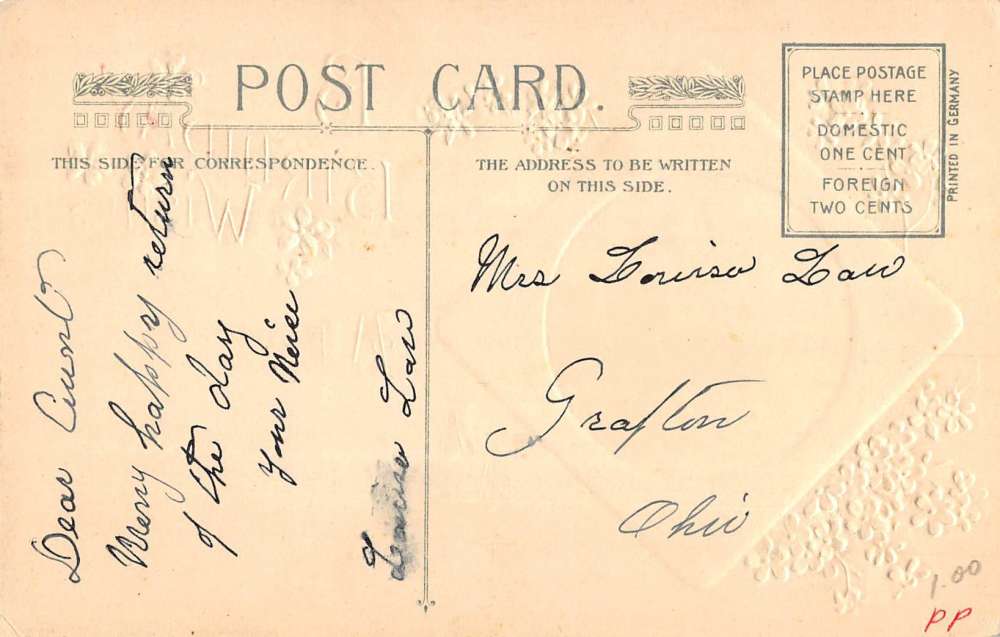 POST CARD.
THIS SIDE FOR CORRESPONDENCE.
THE ADDRESS TO BE WRITTEN
ON THIS SIDE.
PLACE POSTAGE
STAMP HERE
DOMESTIC
ONE CENT
FOREIGN
TWO CENTS
PRINTED IN GERMANY
Dear Aunt
Merry happy return
of the day
your Neice
Louise Law
Mrs Louisa Law
Grafton
Ohio
1.00
PP